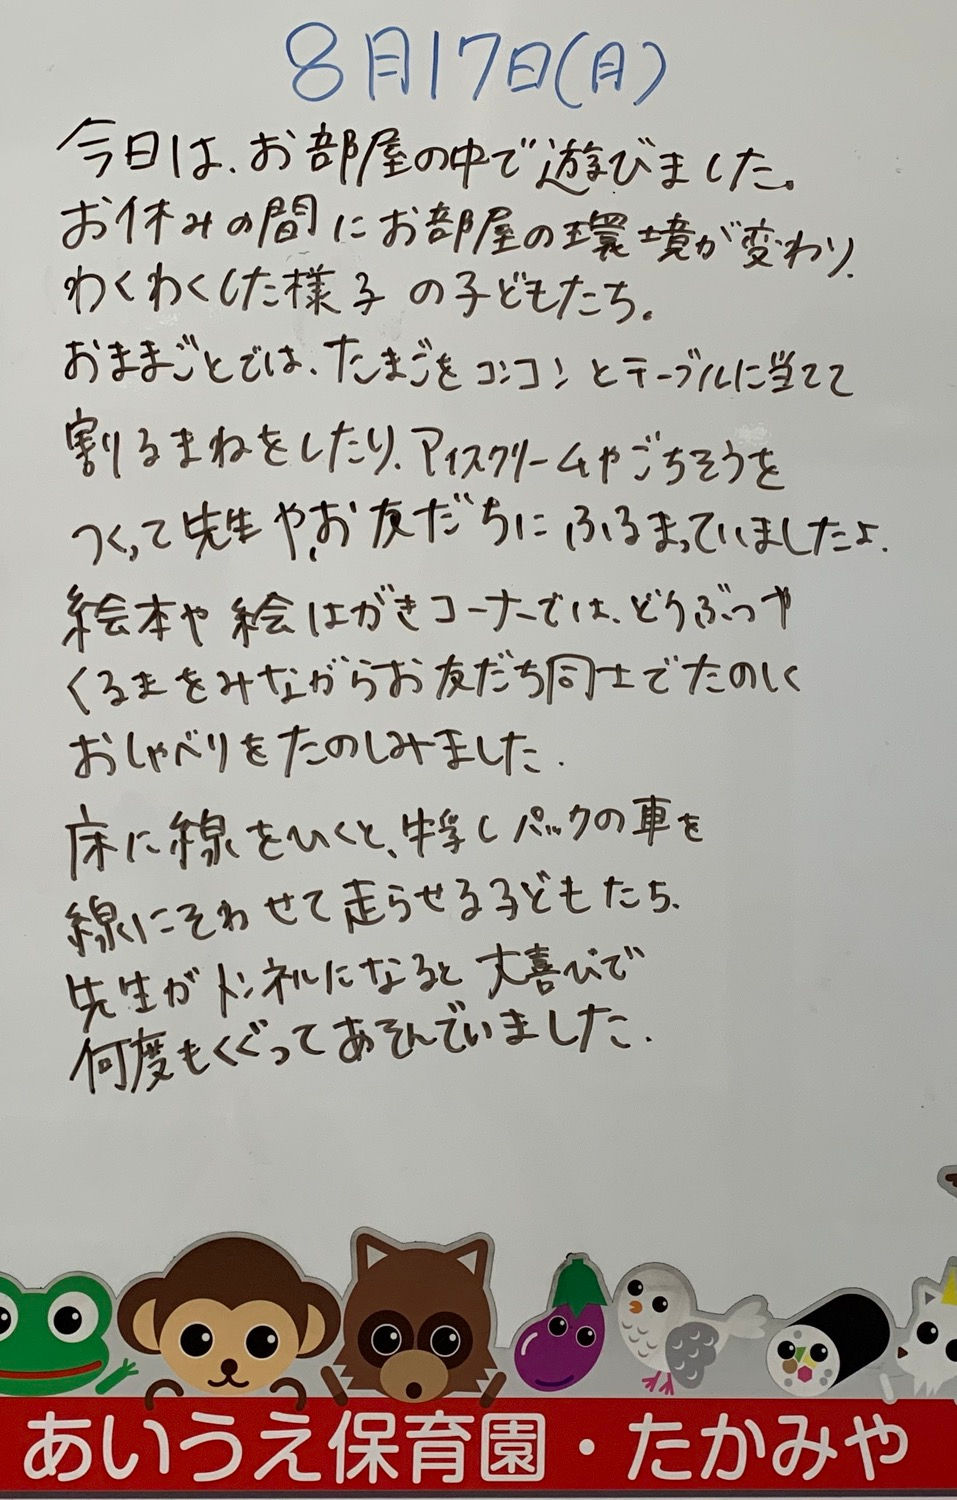 8月17日(月)
今日は、お部屋の中で遊びました。
お休みの間にお部屋の環境が変わり、
わくわくした様子の子どもたち。
おままごとでは、たまごをコンコンとテーブルに当てて
割るまねをしたり、アイスクリームやごちそうを
つくって先生やお友だちにふるまっていましたよ.
絵本や絵はがきコーナーでは、どうぶつや
くるまをみながらお友だち同士でたのしく
おしゃべりをたのしみました.
床に線をひくと、牛乳しパックの車を
線にそわせて走らせる子どもたち.
先生がトンネルになると大喜びで
何度もくぐってあそんでいました.
あいうえ保育園・たかみや